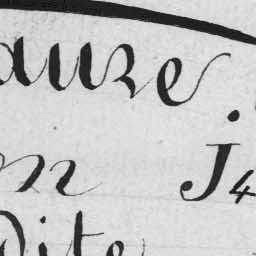 auze
on J4
dite